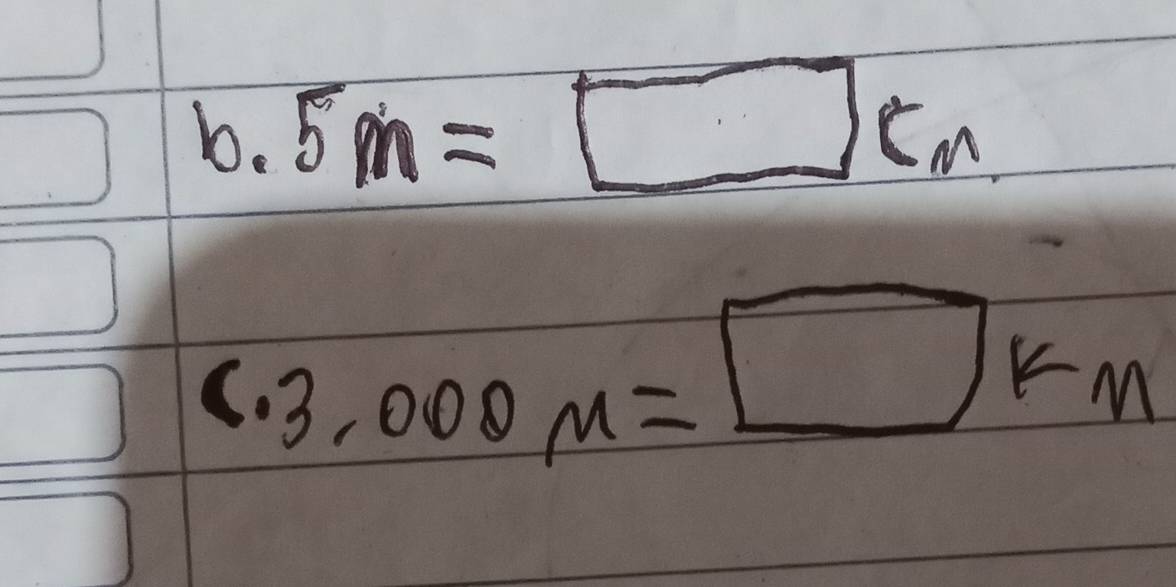 b. 5 m = cm
c. 3,000 m = km